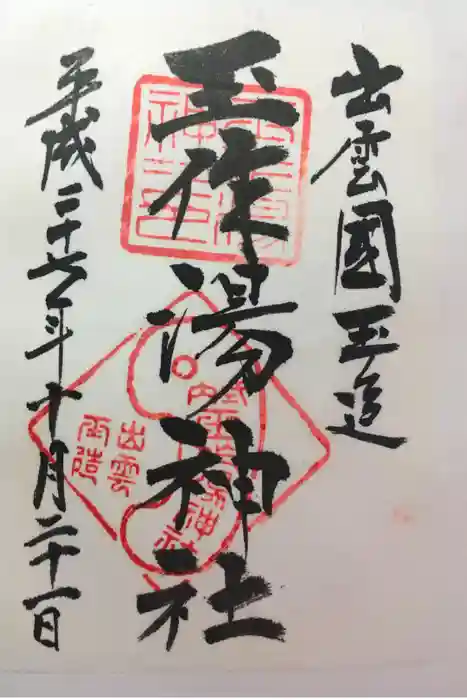 出雲國玉造
玉作湯神社
平成二十六年十月二十一日
出雲